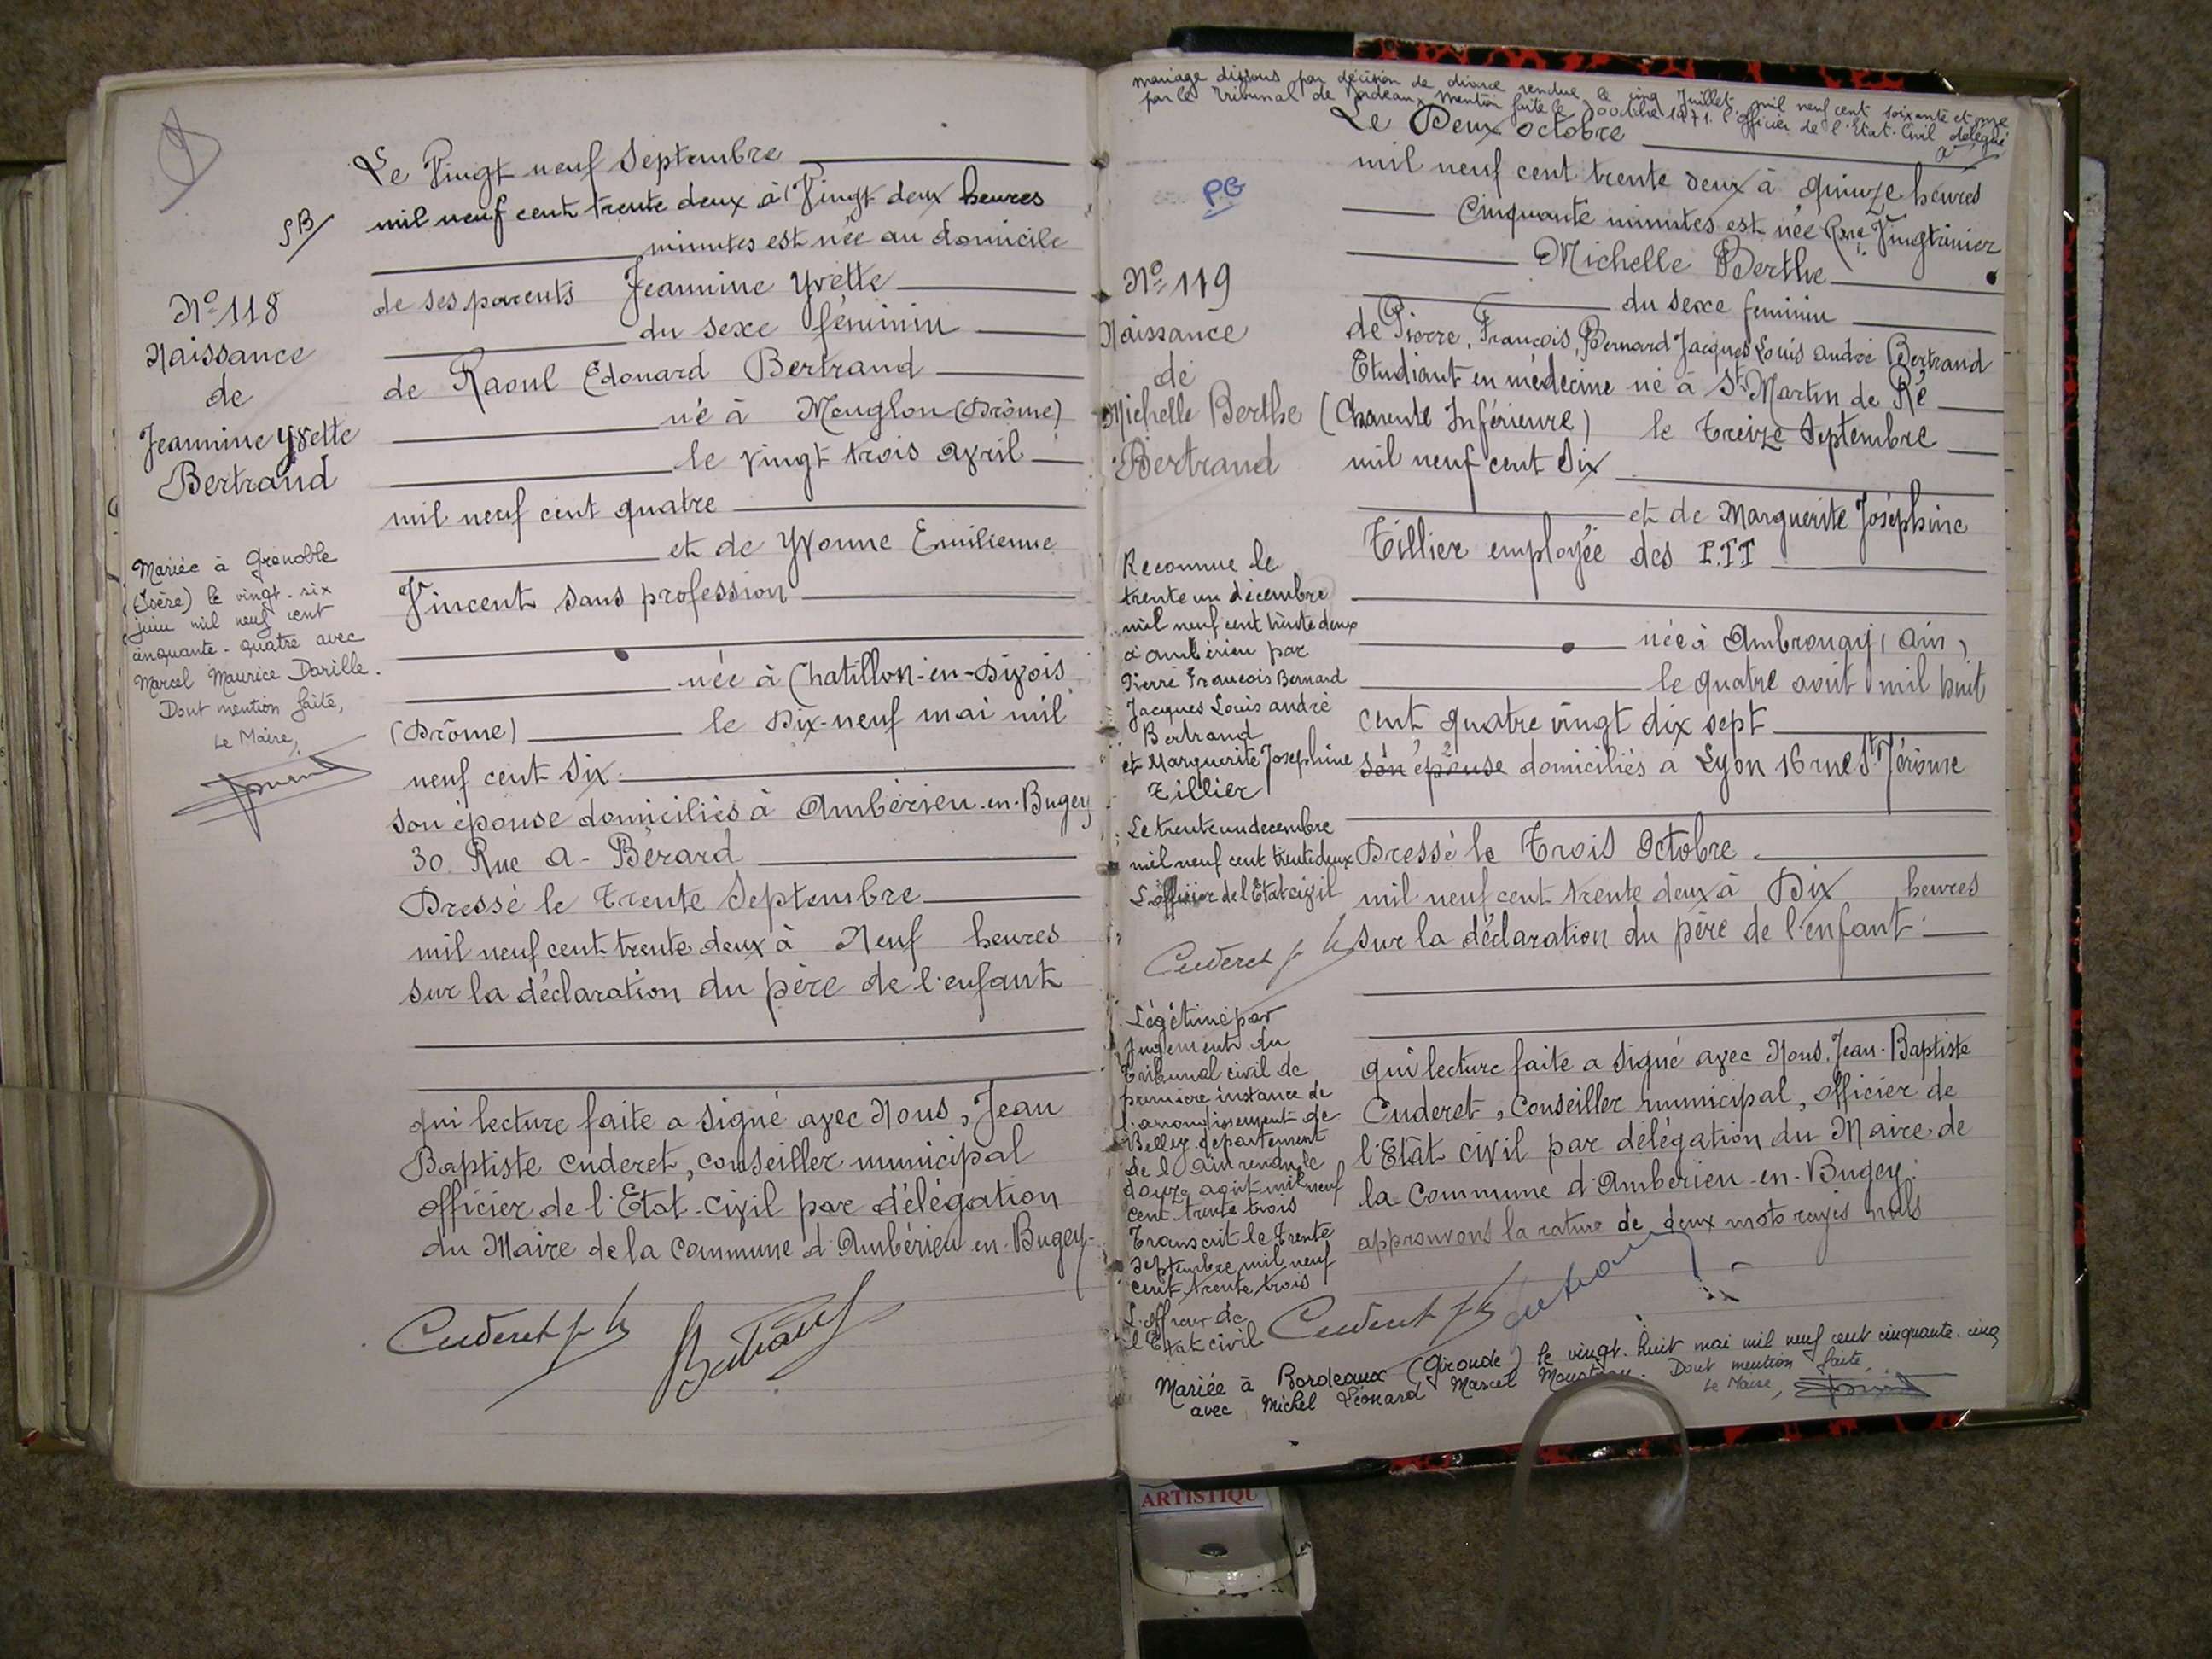 SB
Le Vingt neuf Septembre
mil neuf cent trente deux à Vingt deux heures
minutes est née au domicile
de ses parents Jeannine Yvette
du sexe féminin
de Raoul Edouard Bertrand
né à Menglon (Drôme)
le vingt trois avril
mil neuf cent quatre
et de Yvonne Emilienne
Vincent sans profession
née à Chatillon-en-Diois
(Drôme) le Dix-neuf mai mil
neuf cent six
son épouse domiciliés à Ambérieu-en-Bugey
30 Rue A - Bérard
Dressé le trente Septembre
mil neuf cent trente deux à Neuf heures
sur la déclaration du père de l'enfant
qui lecture faite a signé avec Nous, Jean
Baptiste Cuderet, conseiller municipal
officier de l'Etat-civil par délégation
du Maire de la Commune d'Ambérieu en Bugey-
Cuderet
Bertrand
No 118
Naissance
de
Jeannine Yvette
Bertrand
Mariée à Grenoble
(Isère) le vingt-six
juin mil neuf cent
cinquante-quatre avec
Marcel Maurice Darille.
Dont mention faite,
Le Maire,
mariage dissous par décision de divorce rendue le cinq Juillet mil neuf cent soixante et onze
par le Tribunal de Bordeaux, mention faite le octobre 1971. l'officier de l'Etat-Civil délégué
Le Deux octobre
mil neuf cent trente deux à quinze heures
Cinquante minutes est née Rue Vingtrinier
Michelle Berthe
du sexe feminin
de Pierre, François, Bernard Jacques Louis André Bertrand
Etudiant en médecine né à St Martin de Ré
(Charente Inférieure) le treize Septembre
mil neuf cent six
et de Marguerite Joséphine
Tillier employée des P.T.T
née à Ambronay (Ain)
le quatre août mil huit
cent quatre vingt dix sept
son épouse domiciliés à Lyon 16 rue St Jérôme
Dressé le Trois Octobre
mil neuf cent trente deux à Dix heures
sur la déclaration du père de l'enfant
qui lecture faite a signé avec Nous, Jean-Baptiste
Cuderet, Conseiller municipal, officier de
l'Etat civil par délégation du Maire de
la Commune d'Ambérieu-en-Bugey.
approuvons la rature de deux mots rayés nuls
Cuderet
PG
No 119
Naissance
de
Michelle Berthe
Bertrand
Reconnue le
trente un décembre
mil neuf cent trente deux
à Ambérieu par
Pierre François Bernard
Jacques Louis André
Bertrand
et Marguerite Josephine
Tillier
Le trente un decembre
mil neuf cent trente deux
L'officier de l'Etat civil
Cuderet
Légitimé par
Jugement du
Tribunal civil de
première instance de
l'arrondissement de
Belley, departement
de l'Ain rendu le
douze août mil neuf
cent trente trois
Transcrit le trente
septembre mil neuf
cent trente trois
L'officier de
l'Etat civil
Mariée à Bordeaux (Gironde) le vingt-huit mai mil neuf cent cinquante-cinq
avec Michel Léonard Marcel Dont mention faite,
Le Maire,
ARTISTIQU